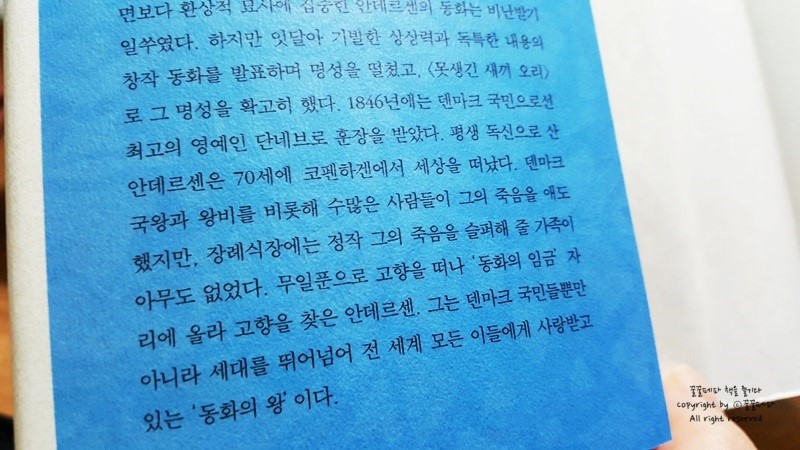 면보다 환상적 묘사에 집중한 안데르센의 동화는 비난받기
일쑤였다. 하지만 잇달아 기발한 상상력과 독특한 내용의
창작 동화를 발표하며 명성을 떨쳤고, 〈못생긴 새끼 오리〉
로 그 명성을 확고히 했다. 1846년에는 덴마크 국민으로선
최고의 영예인 단네브로 훈장을 받았다. 평생 독신으로 산
안데르센은 70세에 코펜하겐에서 세상을 떠났다. 덴마크
국왕과 왕비를 비롯해 수많은 사람들이 그의 죽음을 애도
했지만, 장례식장에는 정작 그의 죽음을 슬퍼해 줄 가족이
아무도 없었다. 무일푼으로 고향을 떠나 '동화의 임금' 자
리에 올라 고향을 찾은 안데르센. 그는 덴마크 국민들뿐만
아니라 세대를 뛰어넘어 전 세계 모든 이들에게 사랑받고
있는 '동화의 왕'이다.
책을 즐기다
copyright by ⓒ
All right reserved